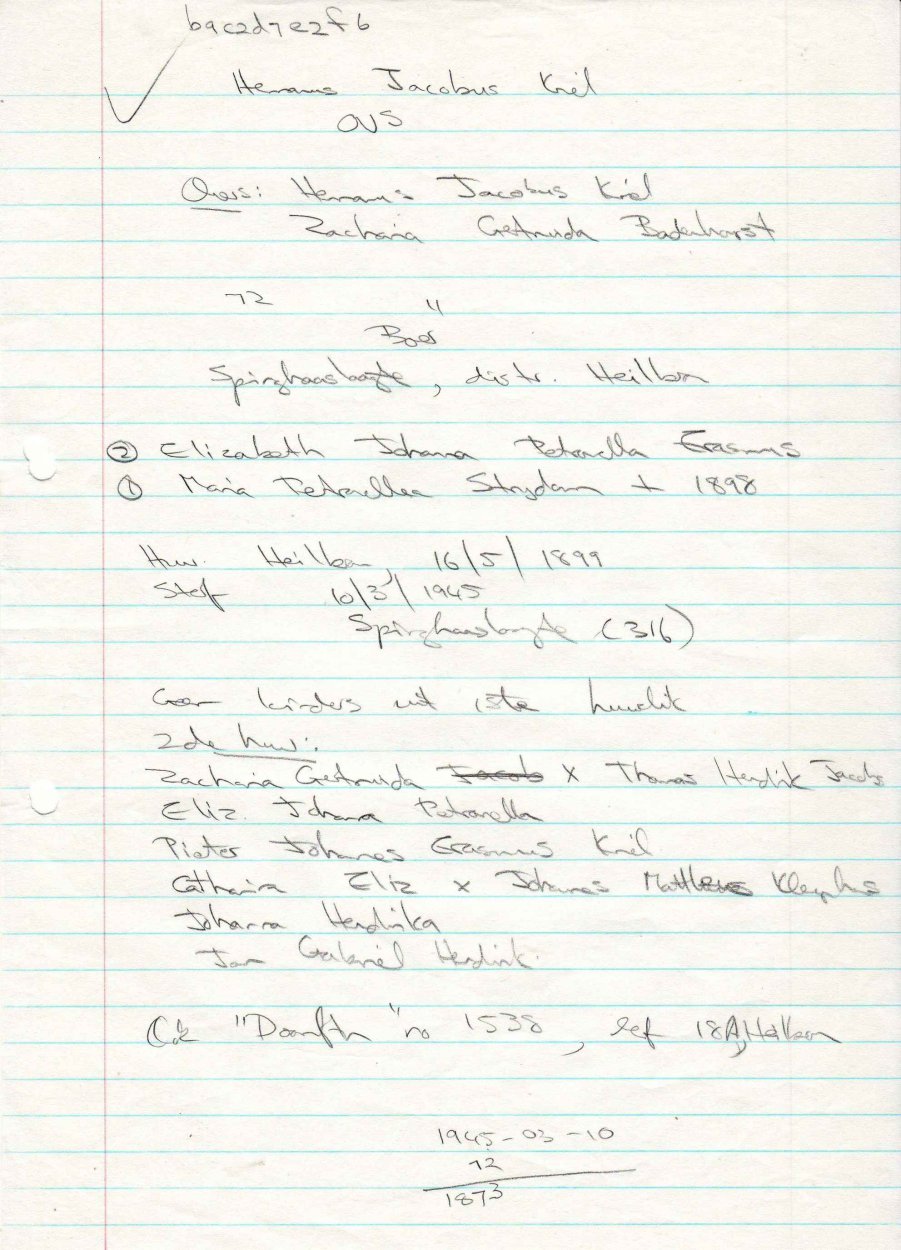 b9c2d7e2f6
Hermanus Jacobus Kriel
OVS
Ouers: Hermanus Jacobus Kriel
Zacharia Gertruida Badenhorst
72 "
Boer
Springhaaslaagte, distr. Heilbron
② Elizabeth Johanna Petronella Erasmus
① Maria Petronella Strydom + 1898
Huw. Heilbron, 16/5/1899
Sterf 10/3/1945
Springhaaslaagte (316)
Geen kinders uit 1ste huwelik
2de huw:
Zacharia Gertruida Jacob x Thomas Hendrik Jacobs
Eliz. Johanna Petronella
Pieter Johannes Erasmus Kriel
Catharina Eliz x Johannes Mattheus
Johanna Hendrika
Jan Gabriel Hendrik.
no 1538, 18A, Heilbron
1945-03-10
72
1873